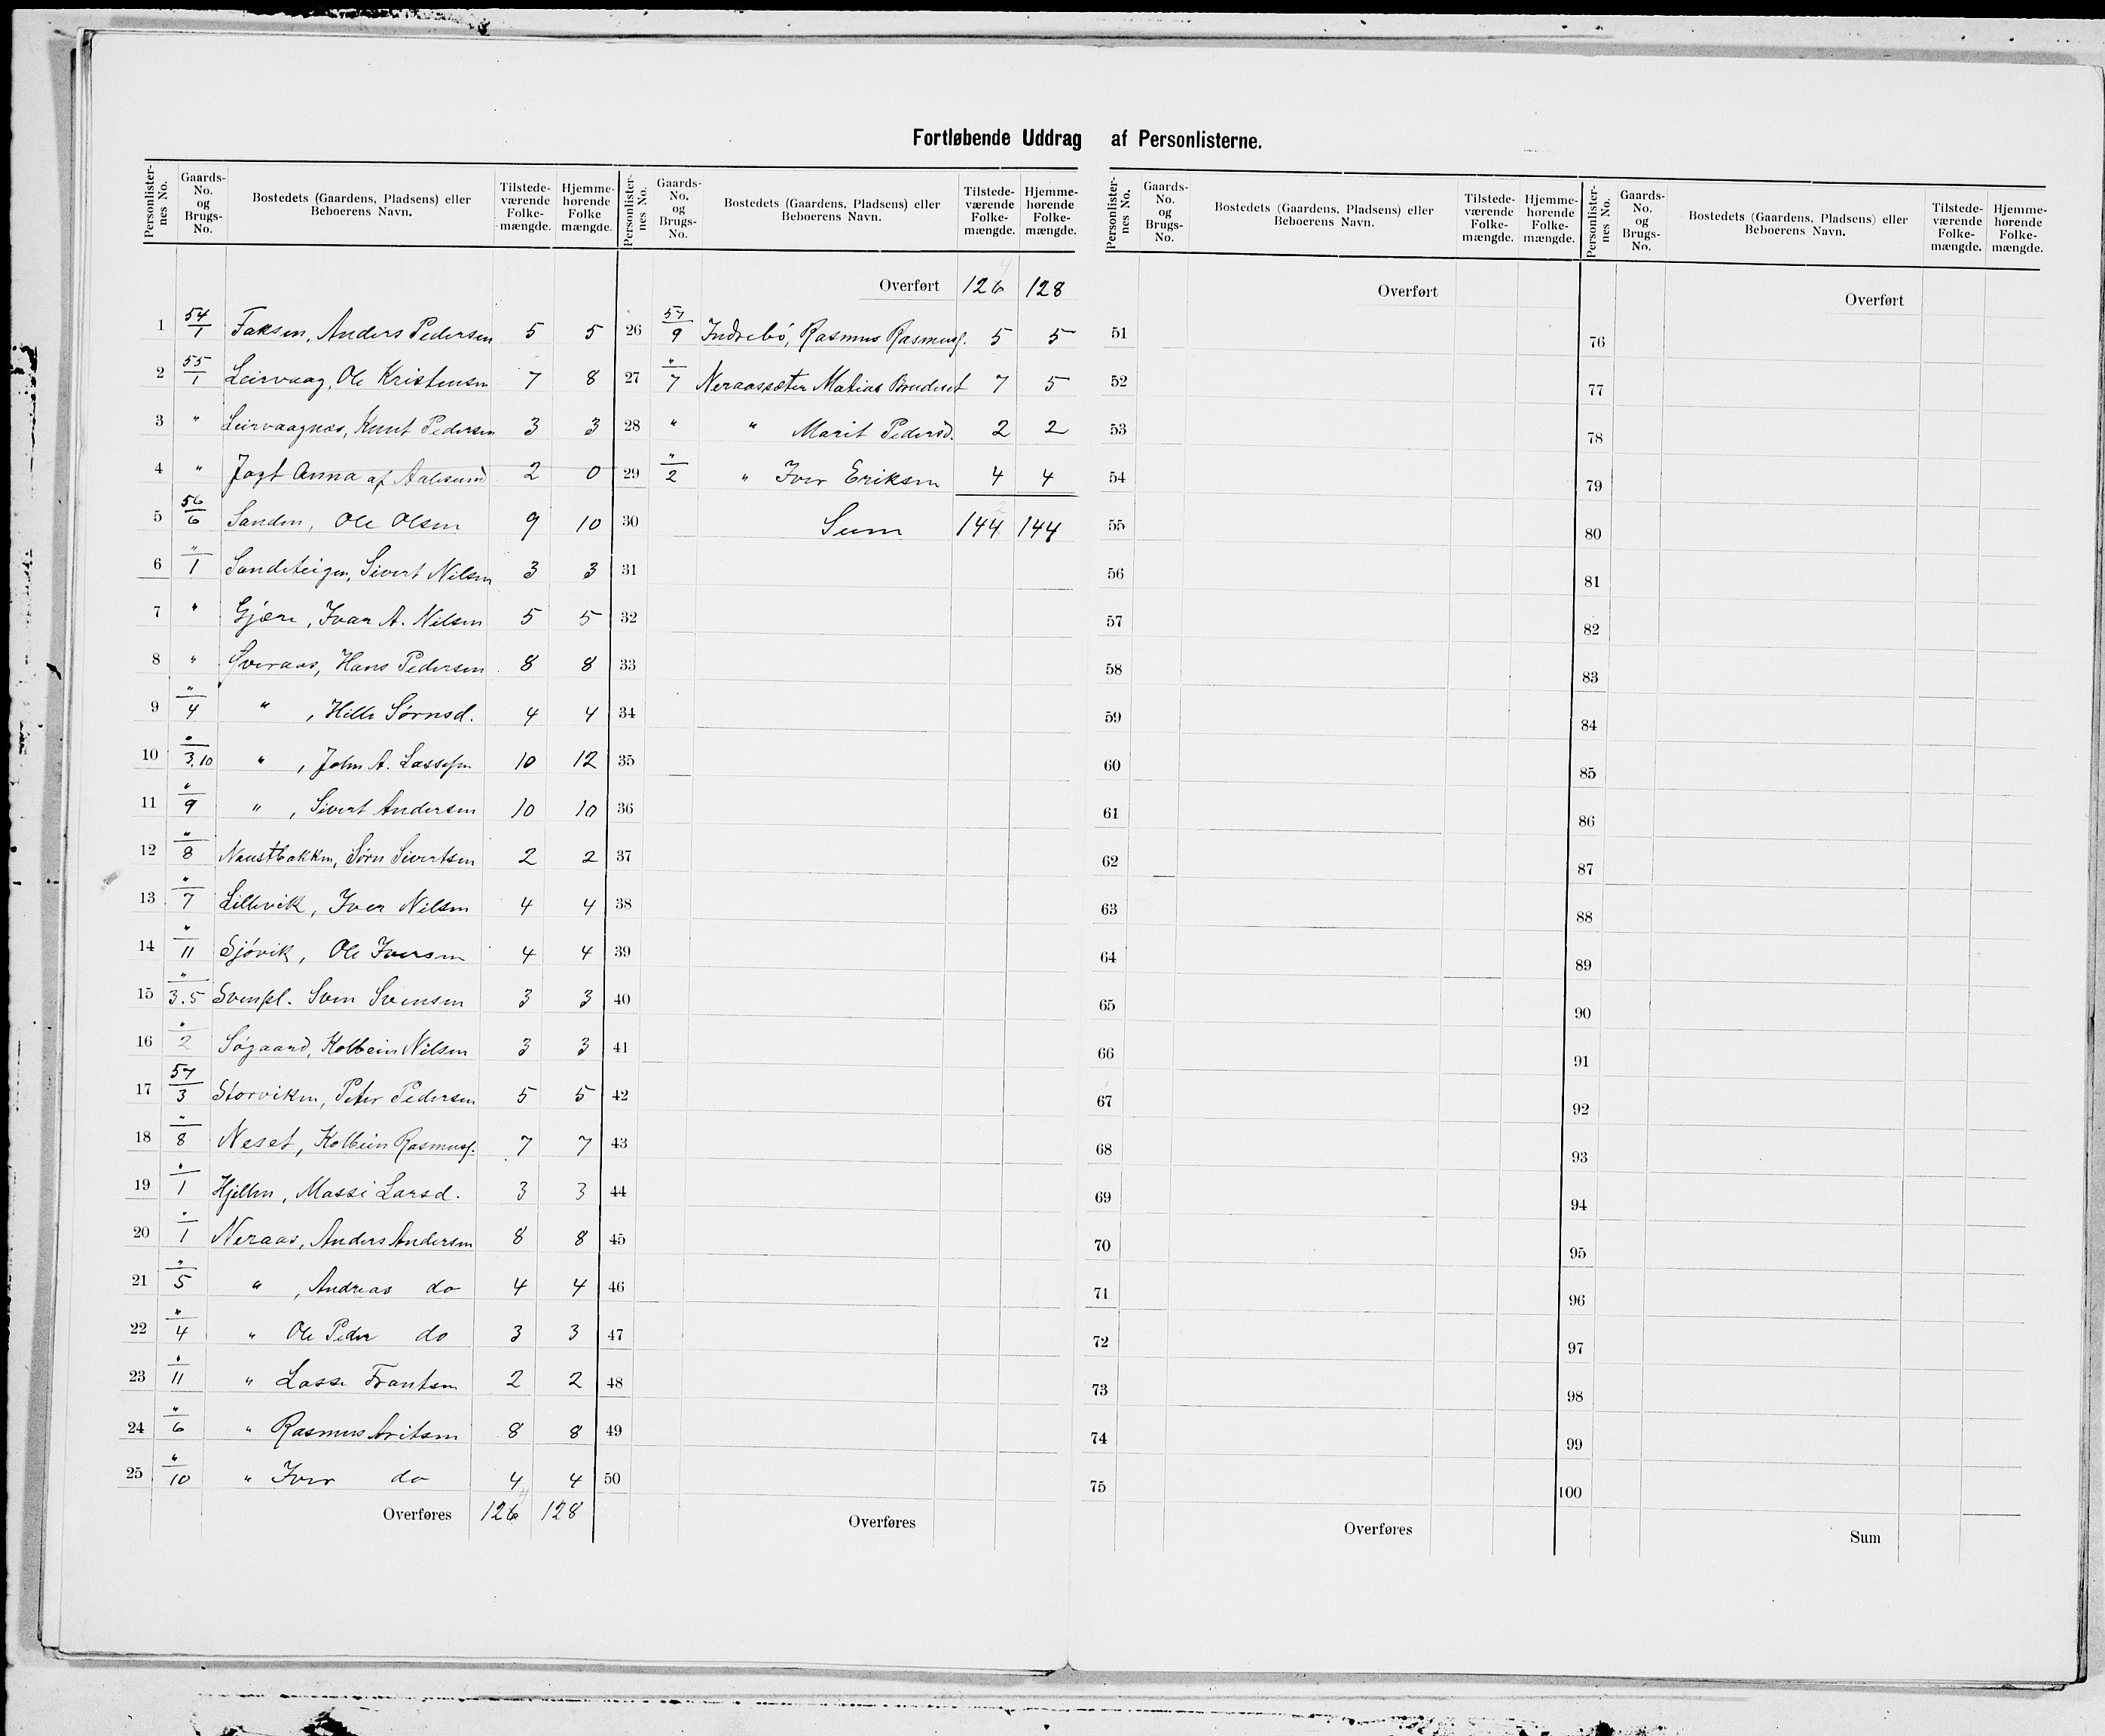 Fortløbende Uddrag af Personlisterne.
Personlister-nes No. Gaards-No. og Brugs-No. Bostedets (Gaardens, Pladsens) eller Beboerens Navn. Tilstede-værende Folke-mængde. Hjemme-hørende Folke mængde.
Personlister-nes No. Gaards-No. og Brugs-No. Bostedets (Gaardens, Pladsens) eller Beboerens Navn. Tilstede-værende Folke-mængde. Hjemme-hørende Folke-mængde.
Personlister-nes No. Gaards-No. og Brugs-No. Bostedets (Gaardens, Pladsens) eller Beboerens Navn. Tilstede-værende Folke-mængde. Hjemme-hørende Folke-mængde.
Personlister-nes No. Gaards-No. og Brugs-No. Bostedets (Gaardens, Pladsens) eller Beboerens Navn. Tilstede-værende Folke-mængde. Hjemme-hørende Folke-mængde.
1 54/1 Faksen, Anders Pedersen 5 5
2 55/1 Leirvaag, Ole Kristensen 7 8
3 " Leirvaagnes, Knut Pedersen 3 3
4 " Jagt Anna af Aalesund 2 0
5 56/6 Sanden, Ole Olsen 9 10
6 "/1 Sandsteigen, Sivert Nilsen 3 3
7 " Gjære, Ivar A. Nilsen 5 5
8 " Sveraas, Hans Pedersen 8 8
9 "/4 " , Hille Sørnsd. 4 4
10 "/3.10 " , John A. Lassesen 10 12
11 "/9 " , Sivert Andersen 10 10
12 "/8 Naustbakken, Sørn Sivertsen 2 2
13 "/7 Lillevik, Iver Nilsen 4 4
14 "/11 Sjövik, Ole Iversen 4 4
15 "/3.5 Svenpl. Sven Svensen 3 3
16 "/2 Søgaard, Kolbein Nilsen 3 3
17 57/3 Storviken, Peter Pedersen 5 5
18 "/8 Neset, Kolbein Rasmuss. 7 7
19 "/1 Hjellen, Massi Larsd. 3 3
20 "/1 Neraas, Anders Andersen 8 8
21 "/5 " , Andreas do 4 4
22 "/4 " Ole Peder do 3 3
23 "/11 " Lasse Frantsen 2 2
24 "/6 " Rasmus Aritsen 8 8
25 "/10 " Iver do 4 4
Overføres 126 4 128
Overført 126 4 128
26 57/9 Indrebö, Rasmus Rasmuss. 5 5
27 "/7 Neraassæter Matias Brudeset 7 5
28 " " Marit Pedersd. 2 2
29 "/2 " Iver Eriksen 4 4
30 Sum 144 2 144
31
32
33
34
35
36
37
38
39
40
41
42
43
44
45
46
47
48
49
50
Overføres
Overført
51
52
53
54
55
56
57
58
59
60
61
62
63
64
65
66
67
68
69
70
71
72
73
74
75
Overføres
Overført
76
77
78
79
80
81
82
83
84
85
86
87
88
89
90
91
92
93
94
95
96
97
98
99
100
Sum